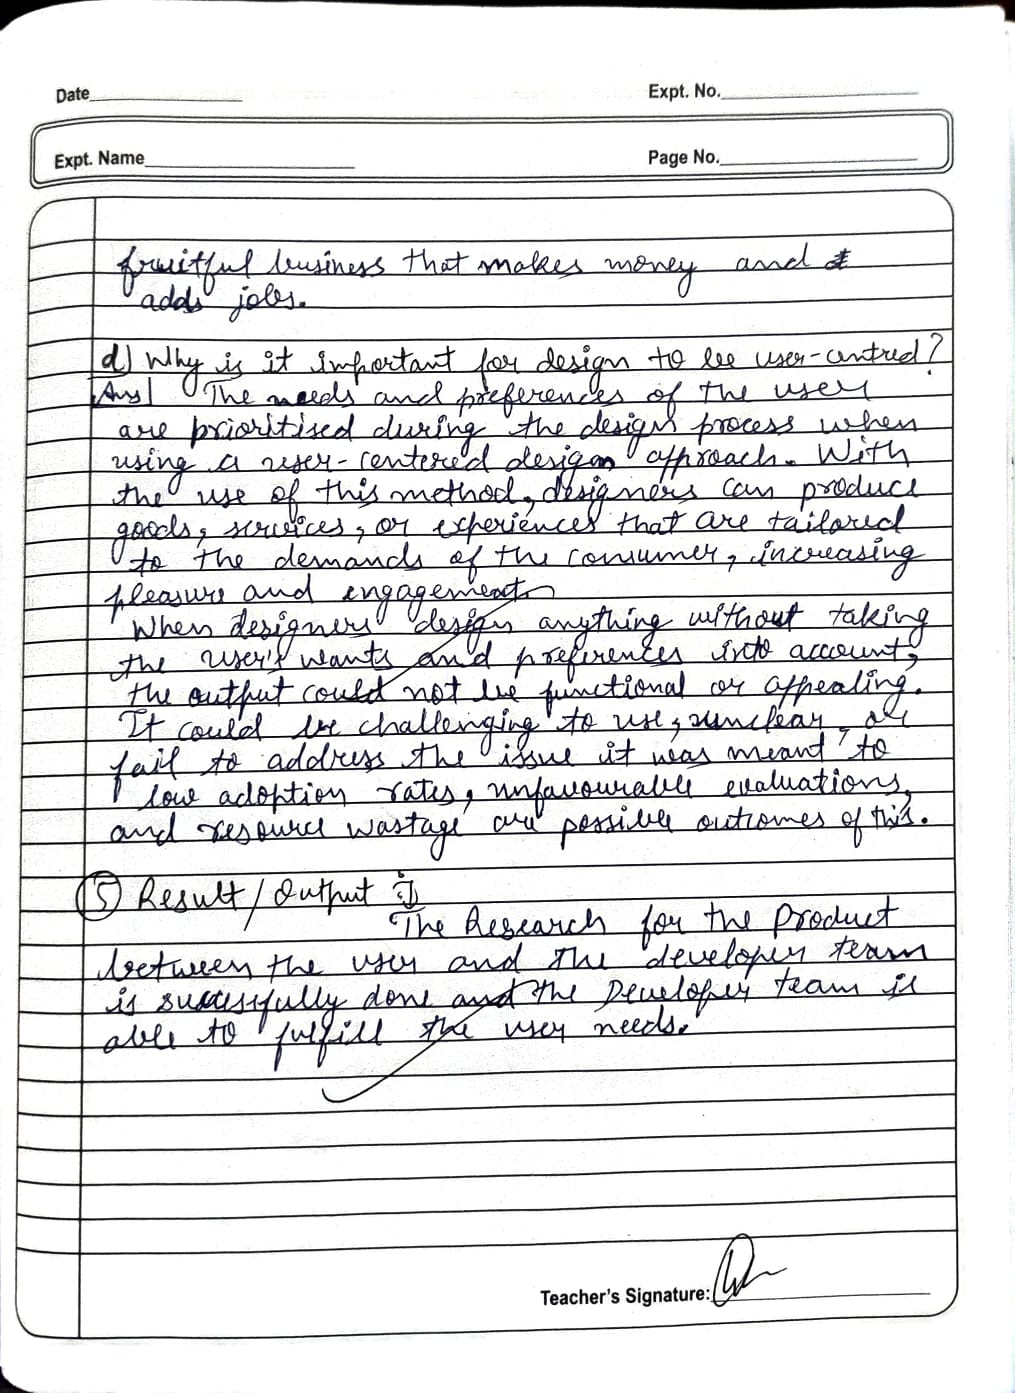 Date
Expt. No.
Expt. Name
Page No.
fruitful business that makes money and
adds jobs.
d) Why is it important for design to be user-centred?
Ans] The needs and preferences of the user
are prioritised during the design process when
using a user-centered design approach. With
the use of this method, designers can produce
goods, services, or experiences that are tailored
to the demands of the consumer, increasing
pleasure and engagement
When designers design anything without taking
the user's wants and preferences into account,
the output could not be functional or appealing.
It could be challenging to use, unclear or
fail to address the issue it was meant to
low adoption rates, unfavourable evaluations,
and resource wastage are possible outcomes of this.
5) Result/Output :
The Research for the Product
between the user and the developer team
is successfully done and the Developer team is
able to fulfill the user needs.
Teacher's Signature: